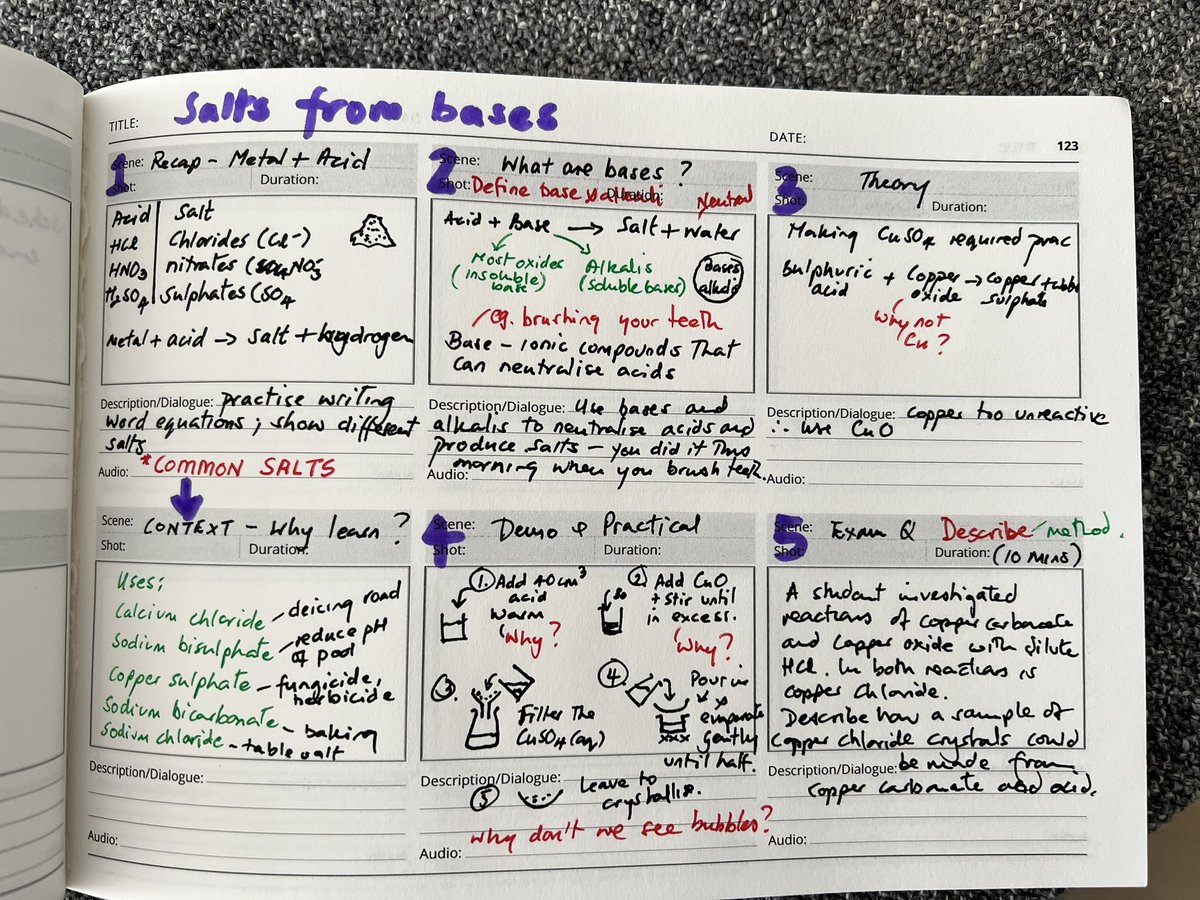 TITLE: Salts from bases
DATE:
123
1
Scene: Recap - Metal + Acid
Shot: Duration:
Acid | Salt
HCl | Chlorides (Cl-)
HNO3 | nitrates ( NO3-
H2SO4 | Sulphates (SO4
Metal + acid → Salt + hydrogen
Description/Dialogue: practise writing
word equations; show different
salts
Audio: *COMMON SALTS
2
Scene: What are bases?
Shot: Define base & alkali Duration: Neutral
Acid + Base → Salt + Water
Most oxides
(insoluble)
base
Alkalis
(soluble bases)
Bases
alkalis
eg. brushing your teeth
Base - ionic compounds That
can neutralise acids
Description/Dialogue: Use bases and
alkalis to neutralise acids and
produce salts - you did it This
morning when you brush teeth.
Audio:
3
Scene: Theory
Shot: Duration:
Making CuSO4 required prac
Sulphuric + Copper → copper +
acid oxide sulphate
Why not
Cu?
Description/Dialogue: copper too unreactive
∴ use CuO
Audio:
Scene: CONTEXT - Why learn?
Shot: Duration:
Uses;
Calcium chloride - deicing road
Sodium bisulphate - reduce pH
of pool
Copper sulphate - fungicide,
herbicide
Sodium bicarbonate - baking
Sodium chloride - table salt
Description/Dialogue:
Audio:
4
Scene: Demo & Practical
Shot: Duration:
1. Add 40cm3
acid
warm
'Why?
2 Add CuO
+ Stir until
in excess.
'Why?
3
Filter The
CuSO4 (aq)
4
Pour in
evaporate
gently
until half.
Description/Dialogue:
5 Leave to
crystallise.
Why don't we see bubbles?
Audio:
5
Scene: Exam Q Describe - method.
Shot: Duration: (10 MINS)
A student investigated
reactions of copper carbonate
and copper oxide with dilute
HCl. In both reactions is
copper chloride.
Describe how a sample of
copper chloride crystals could
Description/Dialogue: be made from
copper carbonate and acid.
Audio: